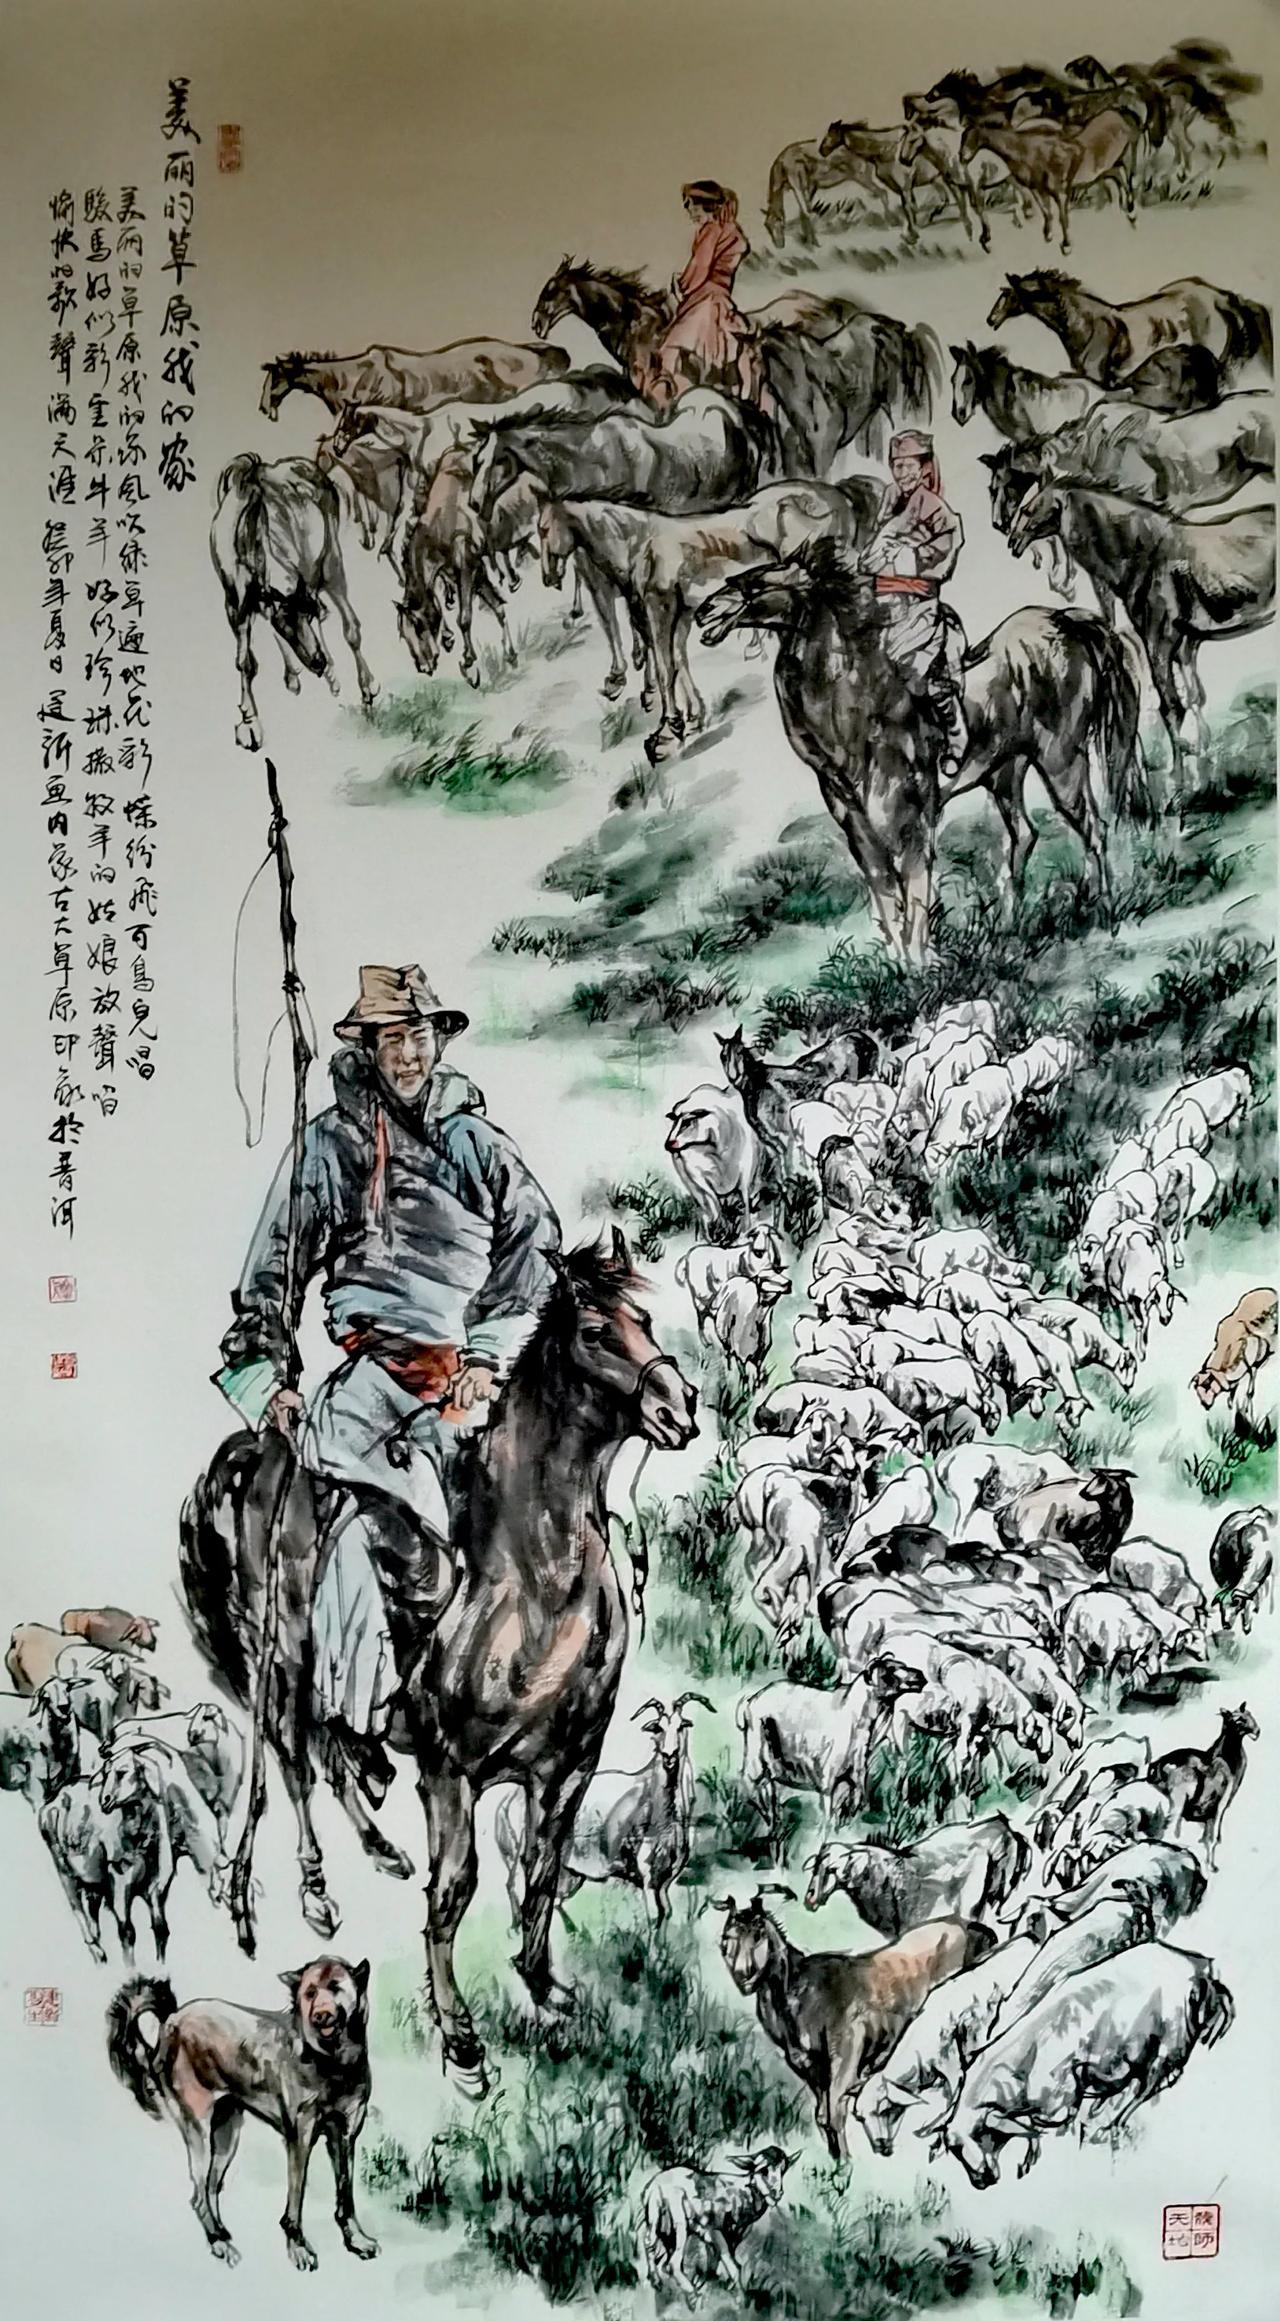 美丽的草原我的家
美丽的草原我的家风吹绿草遍地花彩蝶纷飞百鸟儿唱
骏馬好似彩雲朵牛羊好似珍珠撒牧羊的姑娘放聲唱
愉快的歌聲满天涯癸卯年夏日建新画内蒙古大草原印象於普洱